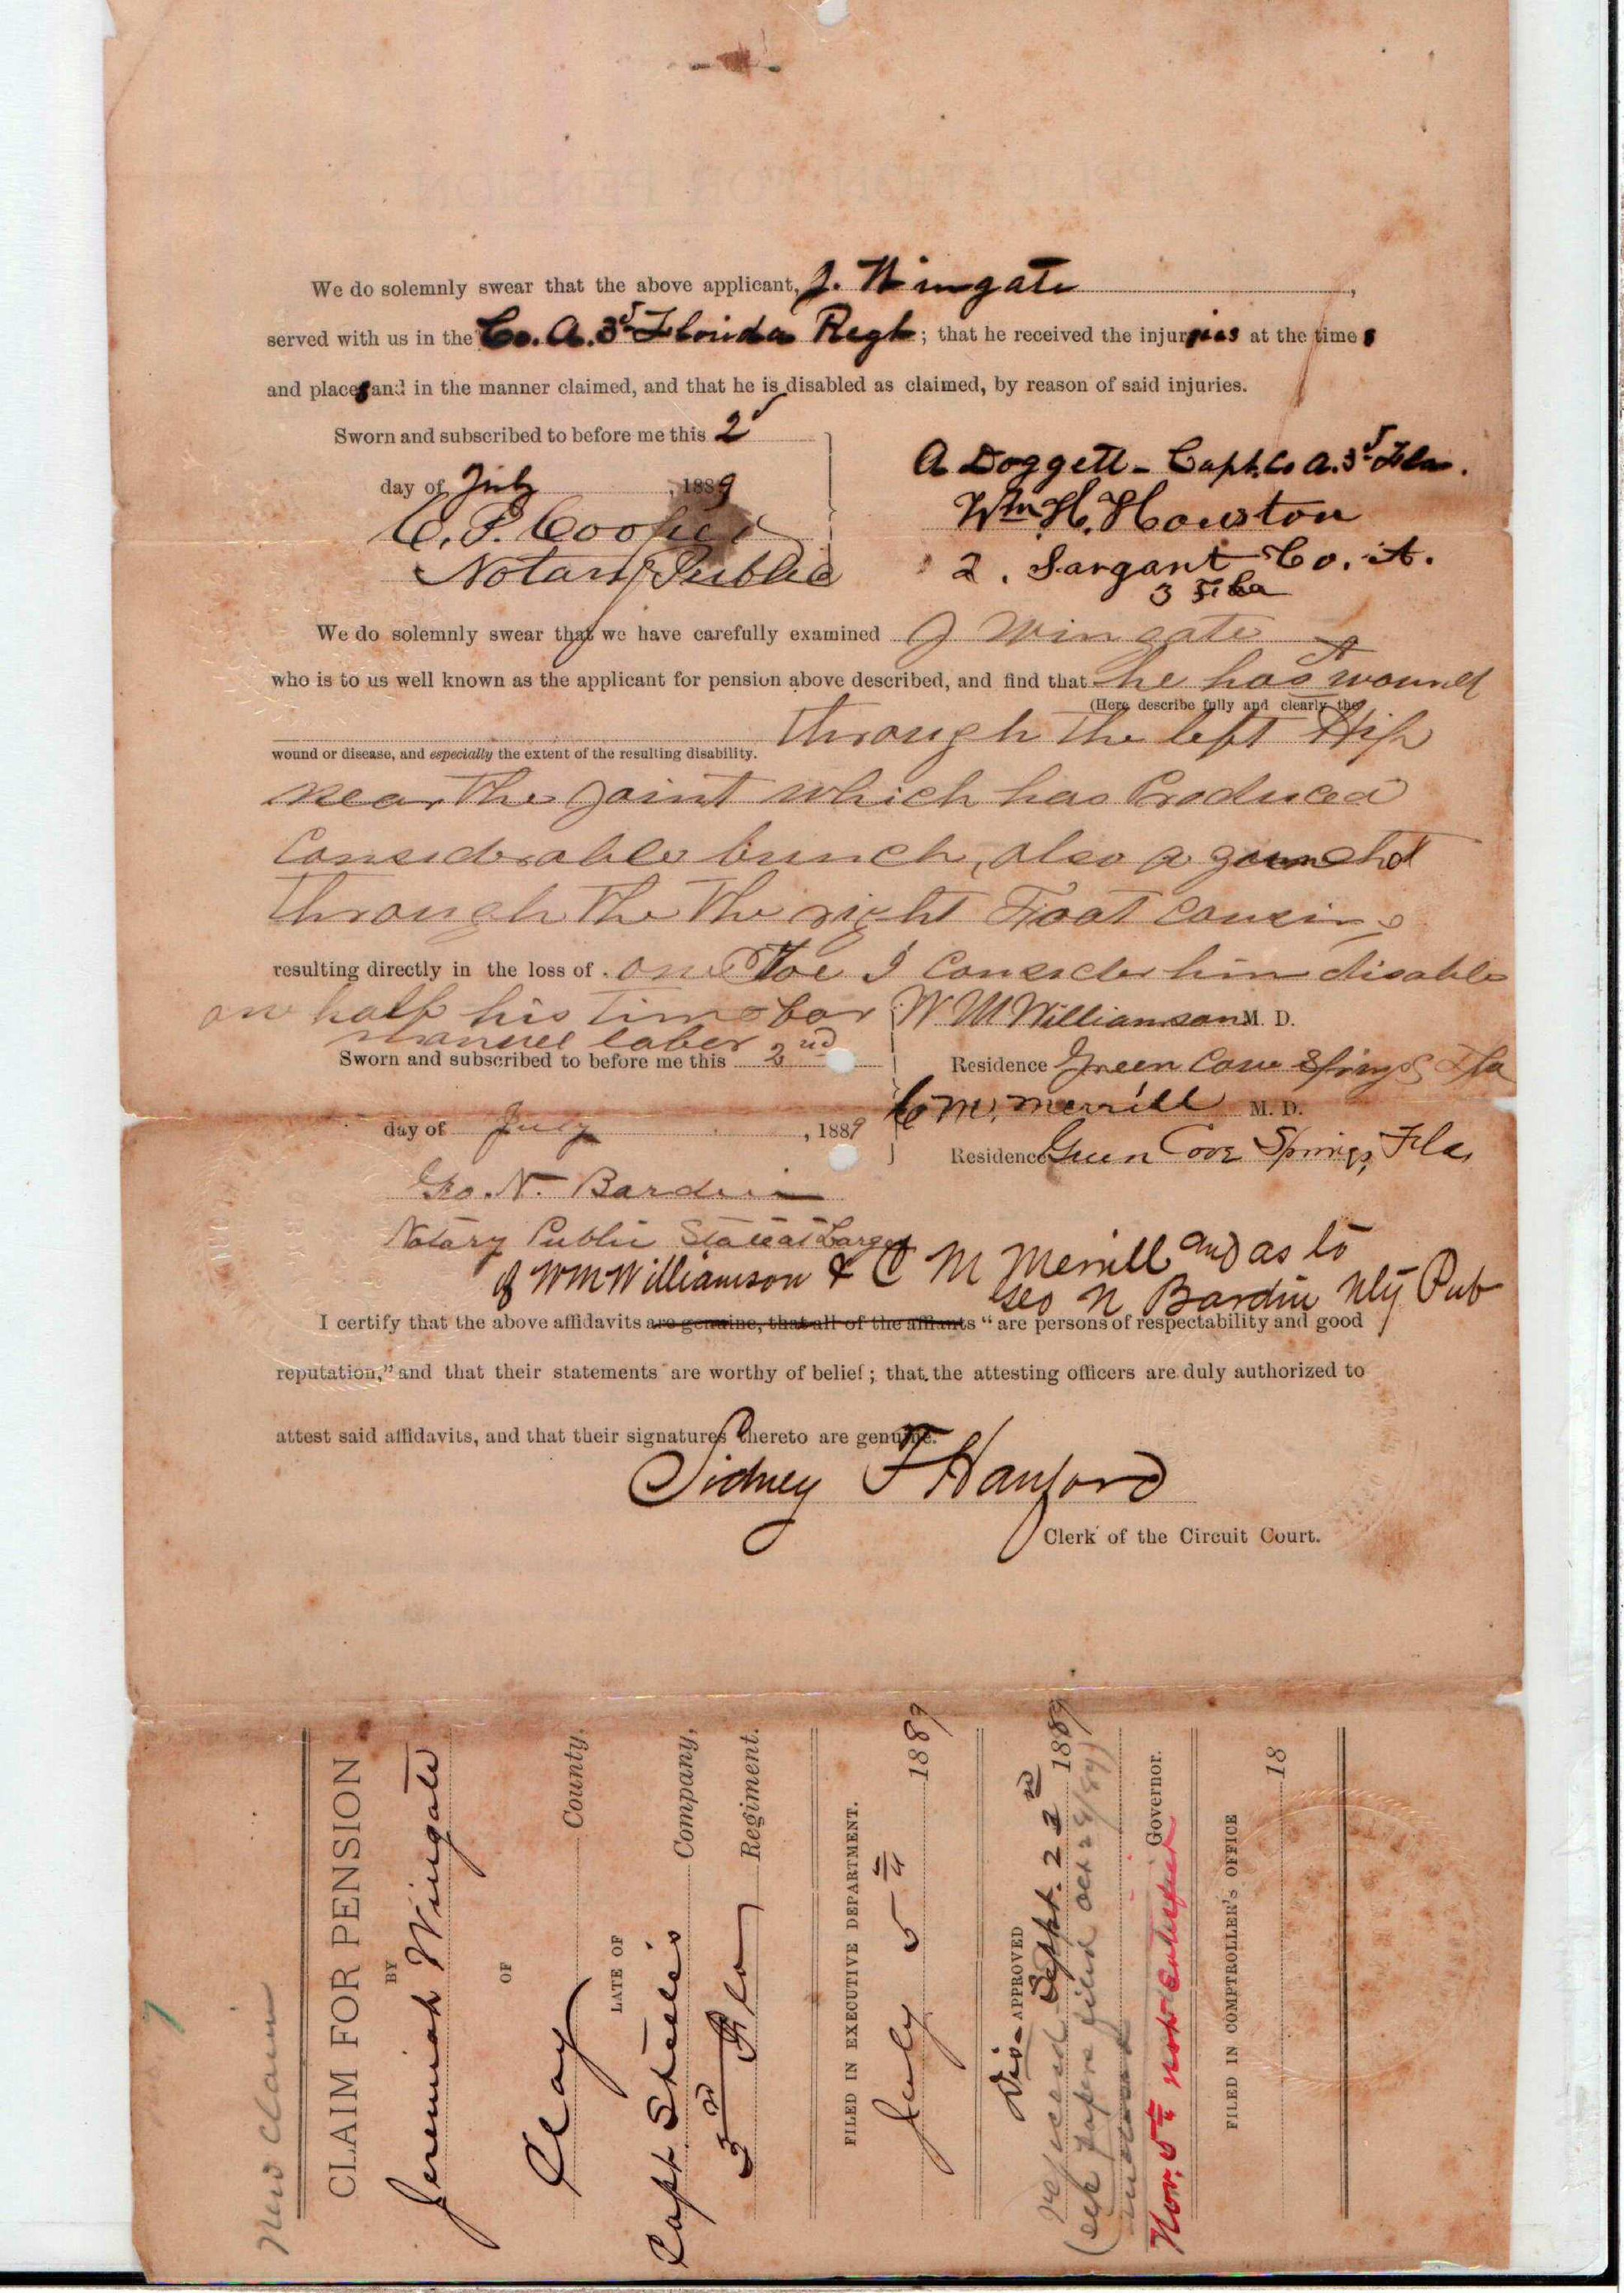 We do solemnly swear that the above applicant, J. Wingate,
served with us in the Co. A. 3d Florida Regt; that he received the injuries at the times
and places and in the manner claimed, and that he is disabled as claimed, by reason of said injuries.
Sworn and subscribed to before me this 2d
day of July, 1889
C. P. Cooper
Notary Public
A Doggett - Capt. Co A. 3d Fla.
Wm. H. Houston
2. Sargant Co. A.
3 Fla
We do solemnly swear that we have carefully examined J Wingate
who is to us well known as the applicant for pension above described, and find that he has A wound
(Here describe fully and clearly the
wound or disease, and especially the extent of the resulting disability. through the left Hip
near the joint which has Produced
Considerable bunch, also a gunshot
through the the right Foot causing
resulting directly in the loss of one Toe I consider him disable
on half his time for
manuel laber
W M Williamson M. D.
Sworn and subscribed to before me this 2nd
Residence Green Cove Springs Fla
C M. Merrill M. D.
day of July, 1889
Residence Green Cove Springs, Fla,
Geo. N. Bardin
Notary Public State at Large
of WM Williamson & C M Merrill and as to
Geo N Bardin Nty Pub
I certify that the above affidavits are genuine, that all of the affiants "are persons of respectability and good
reputation," and that their statements are worthy of belief; that the attesting officers are duly authorized to
attest said affidavits, and that their signatures thereto are genuine.
Sidney F Hanford
Clerk of the Circuit Court.
New Claim
CLAIM FOR PENSION
BY
Jeremiah Wingate
OF
Clay County,
LATE OF
Capt Steele's Company,
3rd Fla Regiment.
FILED IN EXECUTIVE DEPARTMENT.
July 5th 1889
Dis-APPROVED
Sept. 22nd 1889
(see papers filed Oct 24/89)
Governor.
Nov. 5th not entitled
FILED IN COMPTROLLER'S OFFICE
18